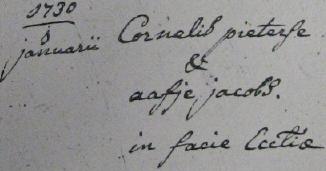 1730
8
januarii Cornelis pieterse
&
aafje jacobs.
in facie Ecclae